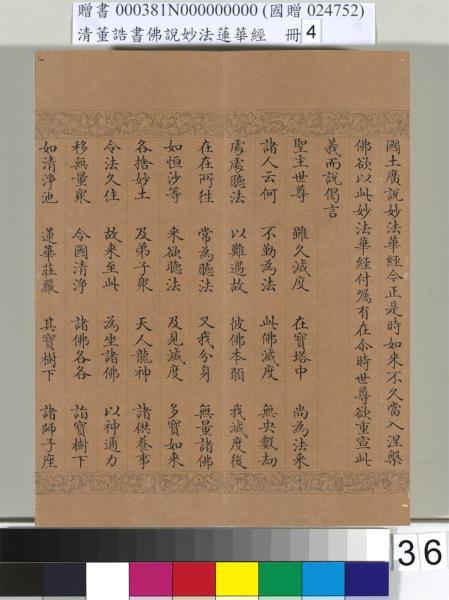 贈書 000381N000000000 (國贈 024752)
清董誥書佛說妙法蓮華經 冊 4
國土廣說妙法華經今正是時如來不久當入涅槃
佛欲以此妙法華經付囑有在尒時世尊欲重宣此
義而說偈言
聖主世尊 雖久滅度 在寶塔中 尚為法來
諸人云何 不勤為法 此佛滅度 無央數劫
處處聽法 以難遇故 彼佛本願 我滅度後
在在所往 常為聽法 又我分身 無量諸佛
如恒沙等 來欲聽法 及見滅度 多寶如來
各捨妙土 及弟子眾 天人龍神 諸供養事
令法久住 故來至此 為坐諸佛 以神通力
移無量眾 令國清淨 諸佛各各 詣寶樹下
如清淨池 蓮華莊嚴 其寶樹下 諸師子座
36